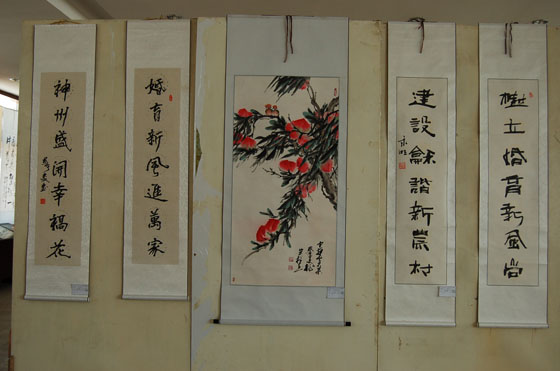 樹立婚育新風尚
建設龢諧新農村
婚育新風進萬家
神州盛開幸福花